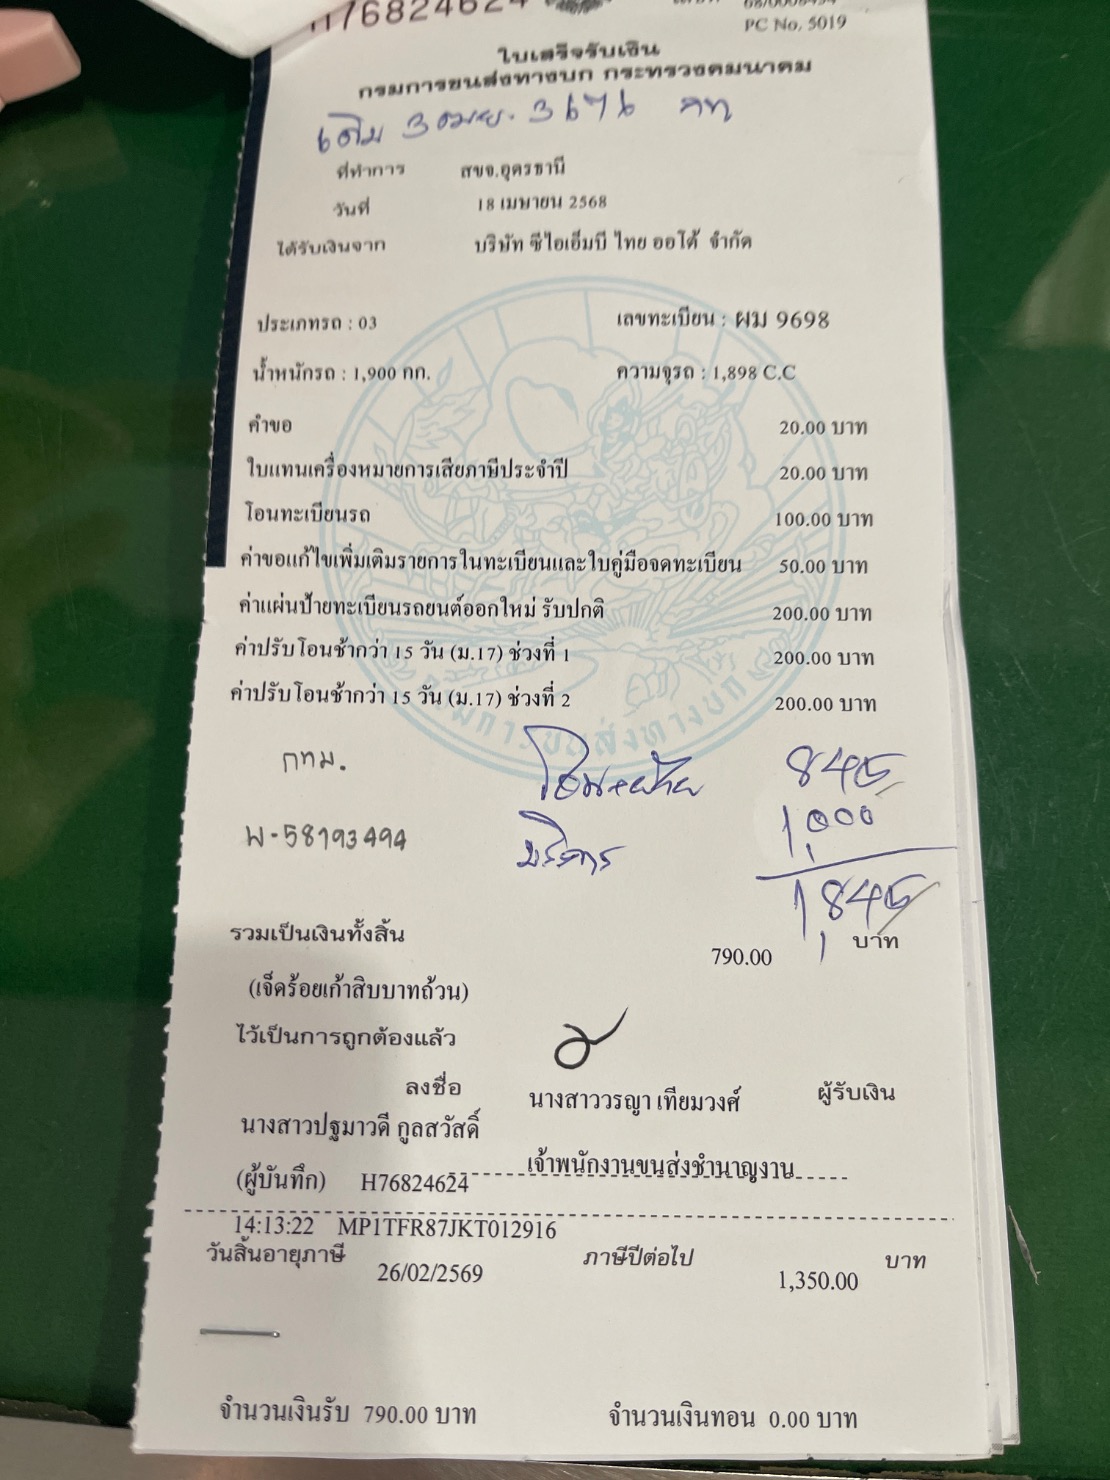 H76824624
PC No. 5019
ใบเสร็จรับเงิน
กรมการขนส่งทางบก กระทรวงคมนาคม
เดิม
ที่ทำการ สขจ.อุดรธานี
วันที่ 18 เมษายน 2568
ได้รับเงินจาก บริษัท ซีไอเอ็มบี ไทย ออโต้ จำกัด
ประเภทรถ : 03 เลขทะเบียน : ผม 9698
น้ำหนักรถ : 1,900 กก. ความจุรถ : 1,898 C.C
คำขอ 20.00 บาท
ใบแทนเครื่องหมายการเสียภาษีประจำปี 20.00 บาท
โอนทะเบียนรถ 100.00 บาท
ค่าขอแก้ไขเพิ่มเติมรายการในทะเบียนและใบคู่มือจดทะเบียน 50.00 บาท
ค่าแผ่นป้ายทะเบียนรถยนต์ออกใหม่ รับปกติ 200.00 บาท
ค่าปรับโอนช้ากว่า 15 วัน (ม.17) ช่วงที่ 1 200.00 บาท
ค่าปรับโอนช้ากว่า 15 วัน (ม.17) ช่วงที่ 2 200.00 บาท
กรมการขนส่งทางบก
กทม. 845
พ-58193494 บริการ 1,000
1,845
รวมเป็นเงินทั้งสิ้น 790.00 บาท
(เจ็ดร้อยเก้าสิบบาทถ้วน)
ไว้เป็นการถูกต้องแล้ว
ลงชื่อ นางสาววรญา เทียมวงศ์ ผู้รับเงิน
นางสาวปฐมาวดี กูลสวัสดิ์
เจ้าพนักงานขนส่งชำนาญงาน
(ผู้บันทึก) H76824624
14:13:22 MP1TFR87JKT012916
วันสิ้นอายุภาษี 26/02/2569 ภาษีปีต่อไป 1,350.00 บาท
จำนวนเงินรับ 790.00 บาท จำนวนเงินทอน 0.00 บาท